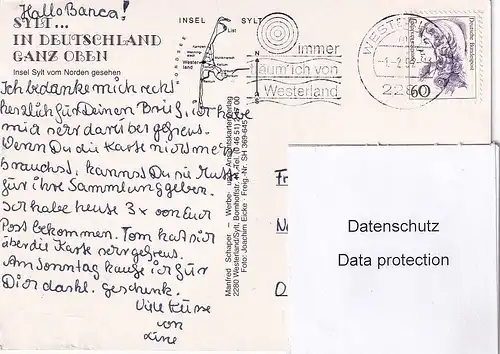 Hallo Bianca!
SYLT...
IN DEUTSCHLAND
GANZ OBEN
Insel Sylt vom Norden gesehen
Ich bedanke mich recht
herzlich für Deinen Brief, ich habe
mich sehr darüber gefreut.
Wenn Du die Karte nicht mehr
brauchst, kannst Du sie Mutti
für ihre Sammlung geben.
Ich habe heute 3x von Eur
Post bekommen. Tom hat sich
über die Karte sehr gefreut.
Am Sonntag kaufe ich für
Dich geschenk.
Viele Küsse
von
INSEL SYLT
NORDSEE
List
Westerland
immer
träum' ich von
Westerland
WESTERLAND
-1-2.0
228
60
Deutsche Bundespost
Manfred Schaper – Werbe- und Ansichtskartenverlag
2280 Westerland/Sylt, Bomhoffstr. Tel. (0 46 51) 2 67 00
Foto: Joachim Eicke · Freig.-Nr. SH 369-645
Datenschutz
Data protection